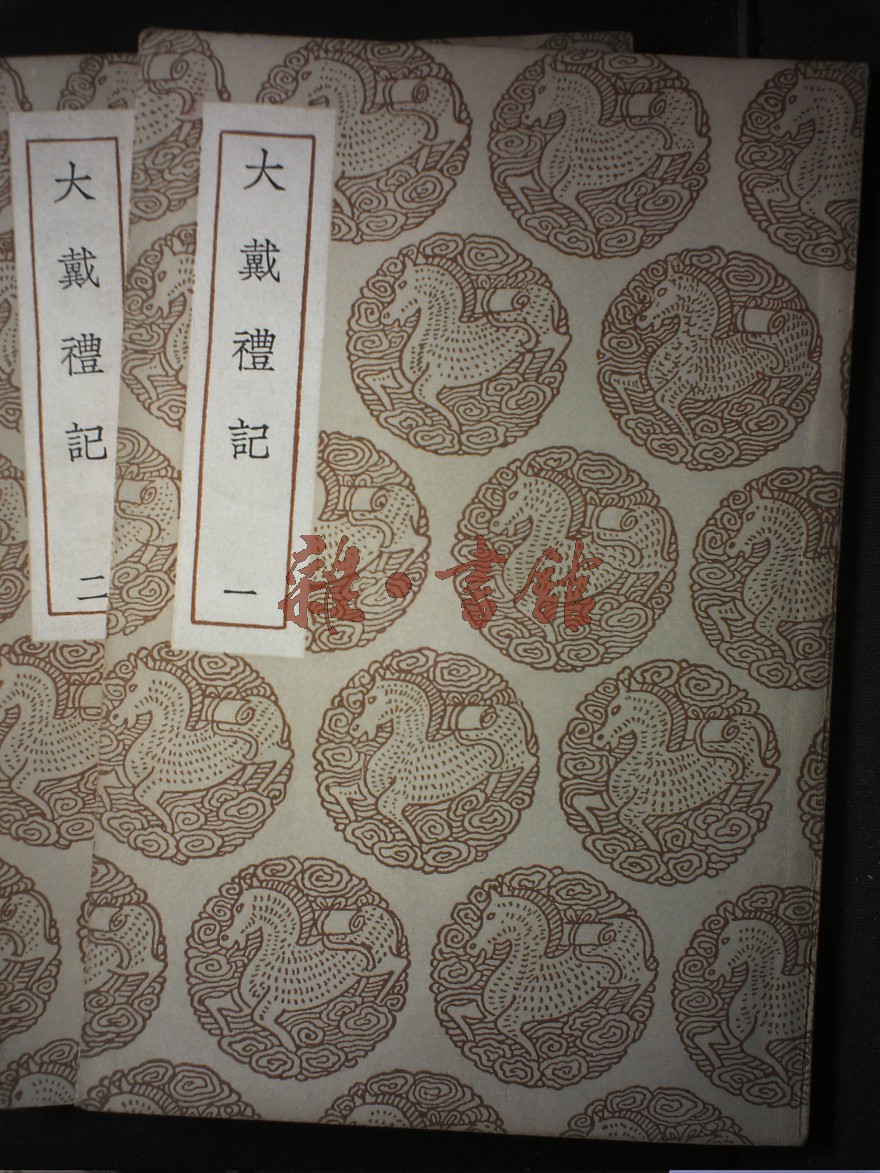 大戴禮記 一
大戴禮記 二
雜·書館